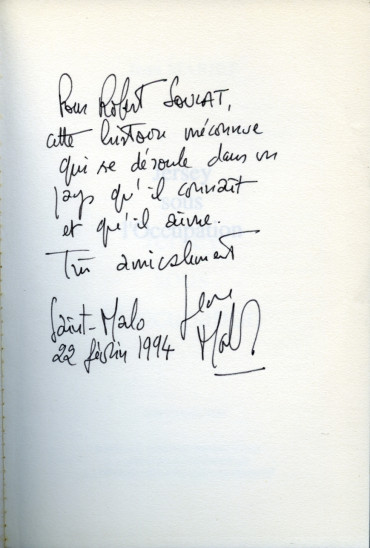 Pour Robert SOULAT,
cette histoire méconnue
qui se déroule dans un
pays qu'il connaît
et qu'il aime.
Très amicalement
Saint-Malo
22 février 1994
Jersey
sous
l'Occupation